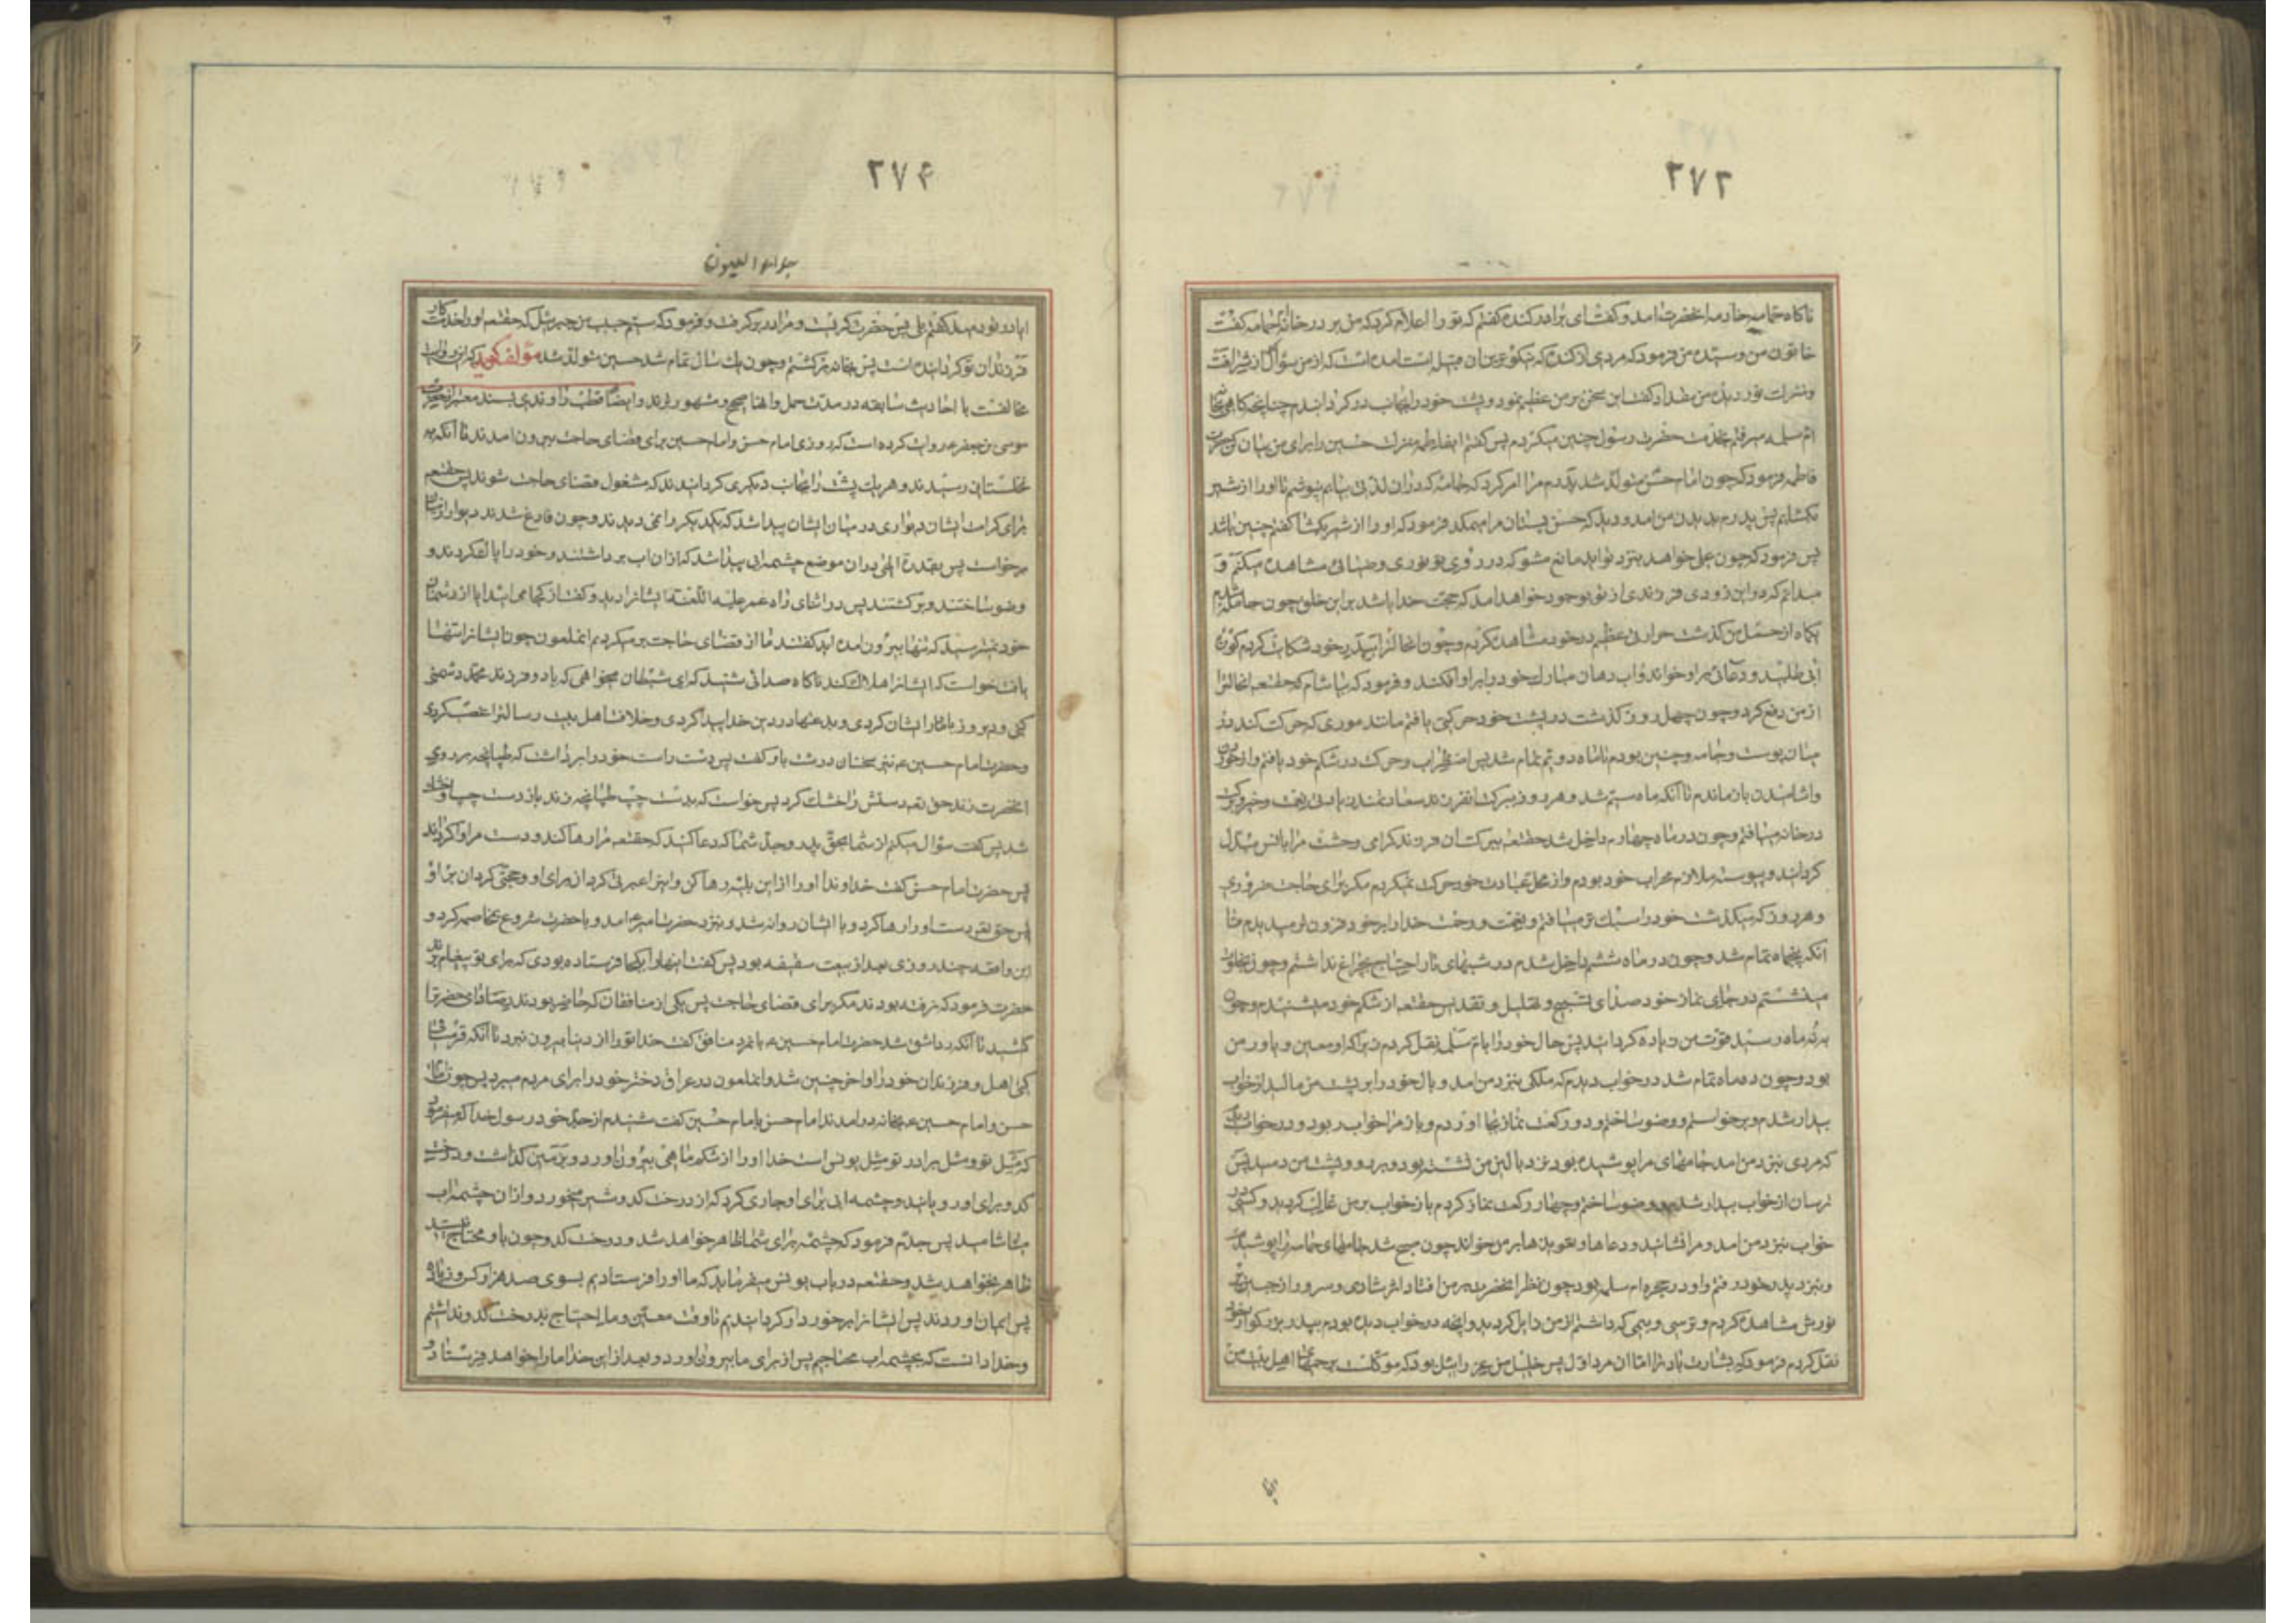 ۲۷۳
ناگاه حمامه خادمه آنحضرت آمد و گفت ای برادر کنده گفتم که تو را اعلام کرد که من بر در خانه‌ام حمامه گفت
خاتون من وسیده من فرمود که مردی از کنده که نیکوترین آن قبیله است آمده است که از من سؤال
ام سلمه میرفتم بخدمت حضرت رسول چنین میکردم پس گفتم ایفاطمه منزلت حسین را برای من بیان کن
فاطمه فرمود که چون امام حسن متولد شد پدرم مرا امر کرد که جامه که در آن لذتی بیابم نپوشم تا او را از شیر
بگشایم پس پدرم بدیدن من آمد و دید که حسن پستان مرا میمکد فرمود که او را از شیر بگشا گفتم چنین باشد
پس فرمود که چون علی خواهد بنزد تو آید مانع مشو که در روی تو نوری و ضیائی مشاهده میکنم و
میدانم که در این زودی فرزندی از تو بوجود خواهد آمد که حجت خدا باشد بر این خلق چون
یکماه از حمل من گذشت حرارتی عظیم در خود مشاهده کردم و چون آنحالت را به پدر خود شکایت کردم کوزه
آبی طلبید و دعائی بر او خواند و آب دهان مبارک خود را بر او افکند و فرمود که بیاشام که حقتعالی آنحالترا
از من دفع کرد و چون چهل روز گذشت در پشت خود حرکتی یافتم مانند موری که حرکت کند در
میان پوست و جامه و چنین بودم تا ماه دویم تمام شد پس اضطراب و حرکت در شکم خود یافتم و از خوردن
و آشامیدن باز ماندم تا آنکه ماه سیّم شد و هر روز ببرکت آنفرزند سعادتمند زیادتی نعمت و خیر و برکت
در خانه مییافتم و چون در ماه چهارم داخل شد حقتعالی ببرکت آن فرزند گرامی وحشت مرا بانس مبدّل
گردانید و پیوسته ملازم محراب خود بودم و از محل عبادت خود حرکت نمیکردم مگر برای حاجت ضروری
و هر روز که میگذشت خود را سبک‌تر مییافتم و نعمت و رحمت خدا را بر خود فزون‌تر میدیدم تا
آنکه پنجماه تمام شد و چون در ماه ششم داخل شدم در شبهای تار احتیاج بچراغ نداشتم و چون بخلوت
مینشستم در جای نماز خود صدای تسبیح و تهلیل و تقدیس حقتعالی از شکم خود میشنیدم و چون
به نه ماه رسید قوت من زیاده گردانید پس حال خود را بام سلمه نقل کردم زیرا که او معین و یاور من
بود و چون ده ماه تمام شد در خواب دیدم که ملکی بنزد من آمد و بال خود را بر پشت من مالید از خواب
بیدار شدم و برخواستم و وضو ساختم و دو رکعت نماز بجا آوردم و باز مرا خواب ربود و در خواب دیدم
که مردی نزد من آمد جامهای مرا پوشیده بود نزد بالین من نشست بود و بر رو و پشت من دمید پس
ترسان از خواب بیدار شدم و وضو ساختم و چهار رکعت نماز کردم باز خواب بر من غالب گردید و کسی در
خواب بنزد من آمد و مرا نشانید و دعاها و تعویذها بر من خواند چون صبح شد جامهای حمامه را پوشیدم
و بنزد پدر خود رفتم و او در حجره ام سلمه بود چون نظر آنحضرت بر من افتاد اثر شادی و سرور از جبین
نورش مشاهده کردم و ترسی و بیمی که داشتم از من زایل گردید و آنچه در خواب دیده بودم به پدر بزرگوار خود
نقل کردم فرمود که بشارت باد ترا امّا آن مرد اوّل پس خلیل من عزرائیل بود که موکلست بر رحمهای اهل بیت من
۲۷۴
جلاء العیون
آیا در تو دمید گفتم بلی پس حضرت گریست و مرا در بر گرفت و فرمود که سیّم حبیب من جبرئیل که حقتعالی او را خدمتکار
فرزندان تو گردانیده است پس بخانه برگشتم و چون یک سال تمام شد حسین متولد شد مؤلف گوید که این روایت
مخالفست با احادیث سابقه در مدت حمل و آنها اصح و مشهورترند و ایضاً قطب راوندی بسند معتبر از حضرت
موسی بن جعفر ع روایت کرده است که روزی امام حسن و امام حسین برای قضای حاجت بیرون آمدند تا آنکه به
نخلستانی رسیدند و هر یک پشت را بجانب دیگری کردانیدند که مشغول قضای حاجت شوند پس حقتعالی
برای کرامت ایشان دیواری در میان ایشان پیدا شد که یکدیگر را نمی دیدند و چون فارغ شدند دیوار از میان
برخواست پس بقدرت الهی بدان موضع چشمه آبی پیدا شد که از آن آب برداشتند و خود را پاک کردند و
وضو ساختند و برگشتند پس در اثنای راه عمر علیه اللعنة ایشانرا دید و گفت از کجا می‌آئید آیا از دشمنان
خود نمیترسید که تنها بیرون آمده اید گفتند ما از قضای حاجت برمیگردیم آنملعون چون ایشانرا تنها
یافت خواست که ایشانرا هلاک کند ناگاه صدائی شنید که ای شیطان میخواهی که با دو فرزند محمد دشمنی
کنی و دیروز با مادر ایشان کردی و بدعتها در دین خدا پیدا کردی و خلافت اهل بیت رسالترا غصب کردی
و حضرت امام حسین ع نیز سخنان درشت باو گفت پس دست راست خود را برداشت که طپانچه بر روی
آنحضرت زند حق تعالی دستش را خشک کرد پس خواست که بدست چپ طپانچه زند باز دست چپ او خشک
شد پس گفت سؤال میکنم از شما بحق پدر و جد شما که دعا کنید که حقتعالی مرا رها کند و دست مرا وا گرداند
پس حضرت امام حسن گفت خداوندا او را از این بلیه رها کن و اینرا عبرتی گردان برای او و حجتی گردان بر او
پس حق تعالی دست او را رها کرد و با ایشان روانه شد و نزد حضرت امیر ع آمد و با حضرت شروع بمخاصمه کرد و
این واقعه چند روزی بعد از بیعت سقیفه بود پس گفت اینها را بکجا فرستاده بودی که برای تو پیغام برند
حضرت فرمود که نرفته بودند مگر برای قضای حاجت پس یکی از منافقان که حاضر بودند ردای حضرت را
کشید تا آنکه ردا شق شد حضرت امام حسین ع با نمرد منافق گفت خدا تو را از دنیا بیرون نبرد تا آنکه
کنی اهل و فرزندان خود را و آخر چنین شد و آنملعون در عراق دختر خود را برای مردم میبرد پس چون امام
حسن و امام حسین ع بخانه درآمدند امام حسن بامام حسین گفت شنیدم از جد خود رسول خدا که میفرمود
که مثل تو و مثل برادر تو مثل یونس است خدا او را از شکم ماهی بیرون آورد و بر زمین گذاشت و درخت
کدو برای او رویانید و چشمه آبی برای او جاری کرد که از درخت کدو شیر میخورد و از آن چشمه آب
میآشامید پس جدّم فرمود که چشمه برای شما ظاهر خواهد شد و درخت کدو چون باو محتاج نیستید
ظاهر نخواهد شد و حقتعالی در باب یونس میفرماید که ما او را فرستادیم بسوی صد هزار کس و زیاده
پس ایمان آوردند پس ایشانرا برخوردار گردانیدیم تا وقت معیّن و ما احتیاج بدرخت کدو نداشتیم
و خدا دانست که بچشمه آب محتاجیم پس از برای ما بیرون آورد و بعد از این خدا ما را خواهد فرستاد و